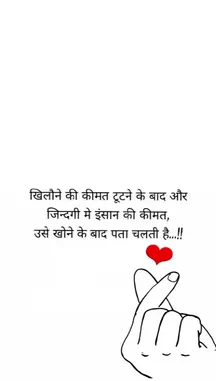 खिलौने की कीमत टूटने के बाद और
जिन्दगी मे इंसान की कीमत,
उसे खोने के बाद पता चलती है...!!